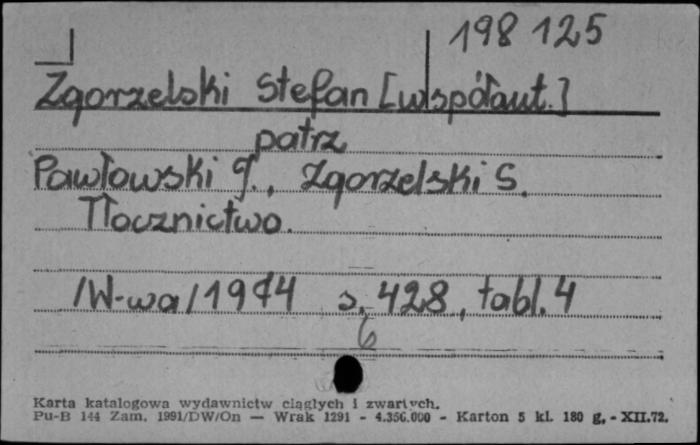 198 125
Zgorzelski Stefan [współaut.]
patrz
Pawłowski J., Zgorzelski S.
Tłocznictwo.
/W-wa/1974 s. 428, tabl. 4
6
Karta katalogowa wydawnictw ciągłych i zwartych.
Pu-B 144 Zam. 1991/DW/On — Wrak 1291 - 4.356.000 - Karton 5 kl. 180 g. - XII.72.